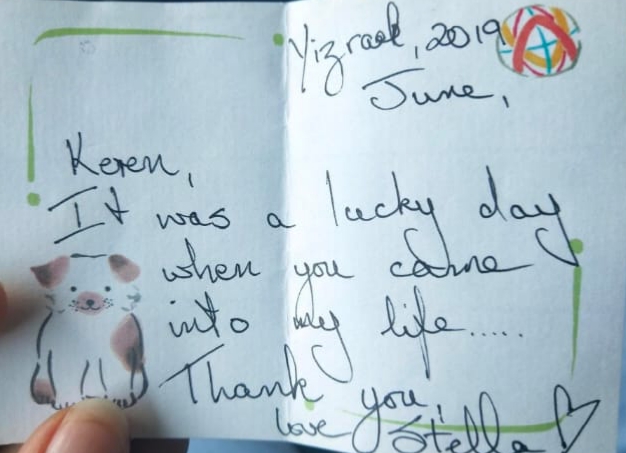 Yizrael, 2019
June,
Keren,
It was a lucky day
when you came
into my life.....
Thank you,
love Stella